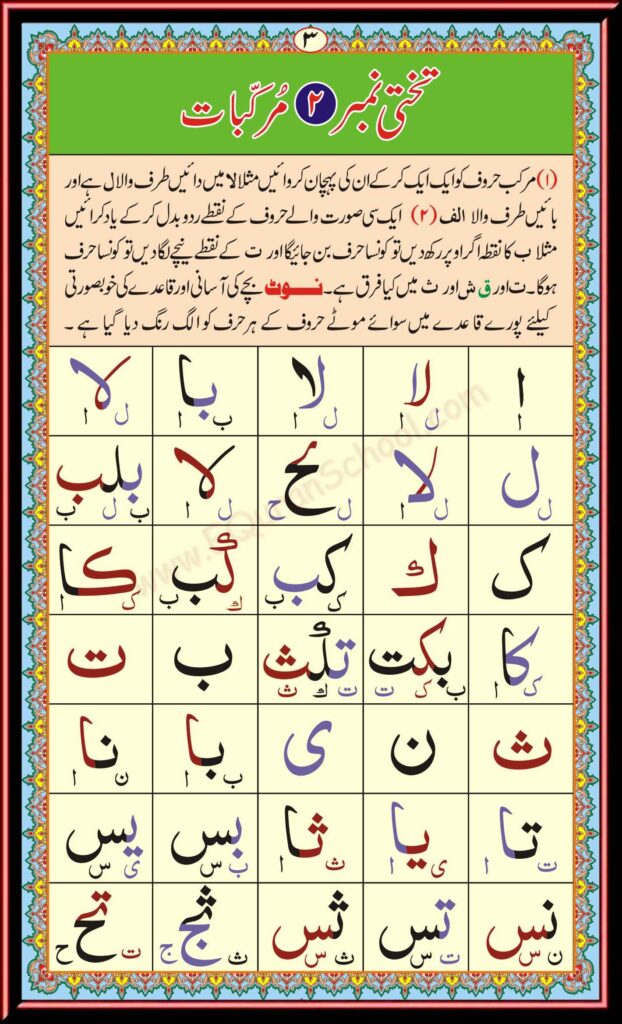 ٣
تختی نمبر ٢ مُرکّبات
(١) مرکب حروف کو ایک ایک کر کے ان کی پہچان کروائیں مثلا لا میں دائیں طرف والا ل ہے اور
بائیں طرف والا الف (٢) ایک سی صورت والے حروف کے نقطے ردو بدل کر کے یاد کرائیں
مثلا ب کا نقطہ اگر اوپر رکھ دیں تو کونسا حرف بن جائیگا اور ت کے نقطے نیچے لگا دیں تو کونسا حرف
ہوگا۔ ت اور ق ش اور ث میں کیا فرق ہے۔ نوٹ بچے کی آسانی اور قاعدے کی خوبصورتی
کیلئے پورے قاعدے میں سوائے موٹے حروف کے ہر حرف کو الگ رنگ دیا گیا ہے ۔
ا لا لا با لا
ل ا ل ا ب ا ل ا
ل لا لح لا بلب
ل ل ا ل ح ل ا ب ل ب
ک ك کب كب کا
ک ب ك ب ک ا
کا بکت تلث ب ت
ک ا ب ک ت ت ك ث
ث ن ی با نا
ب ا ن ا
تا یا ثا بس یس
ت ا ی ا ث ا ب س ی س
نس تس ثس ثج تح
ن س ت س ث س ث ج ت ح
www.EQuranSchool.com